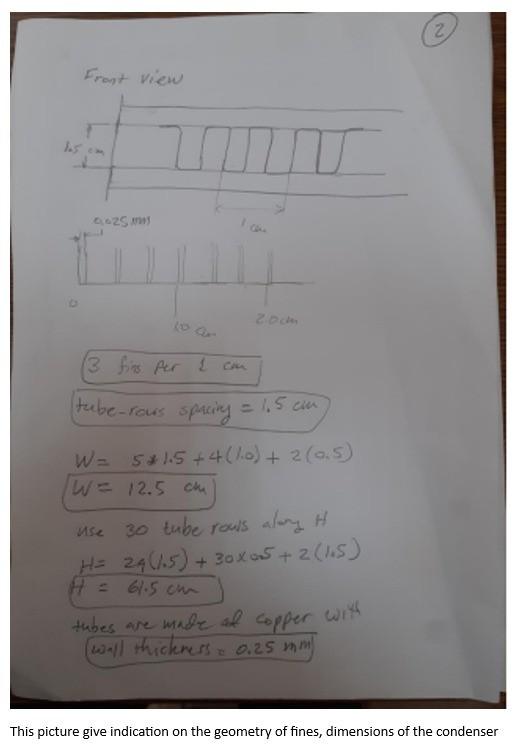 2
Front view
1.5 cm
1 cm
0.025 mm
0
1.0 cm
2.0 cm
3 fins per 1 cm
tube-rows spacing = 1.5 cm
W = 5*1.5 + 4(1.0) + 2(0.5)
W = 12.5 cm
use 30 tube rows along H
H = 29(1.5) + 30x0.5 + 2(1.5)
H = 61.5 cm
tubes are made of copper with
wall thickness = 0.25 mm
This picture give indication on the geometry of fines, dimensions of the condenser